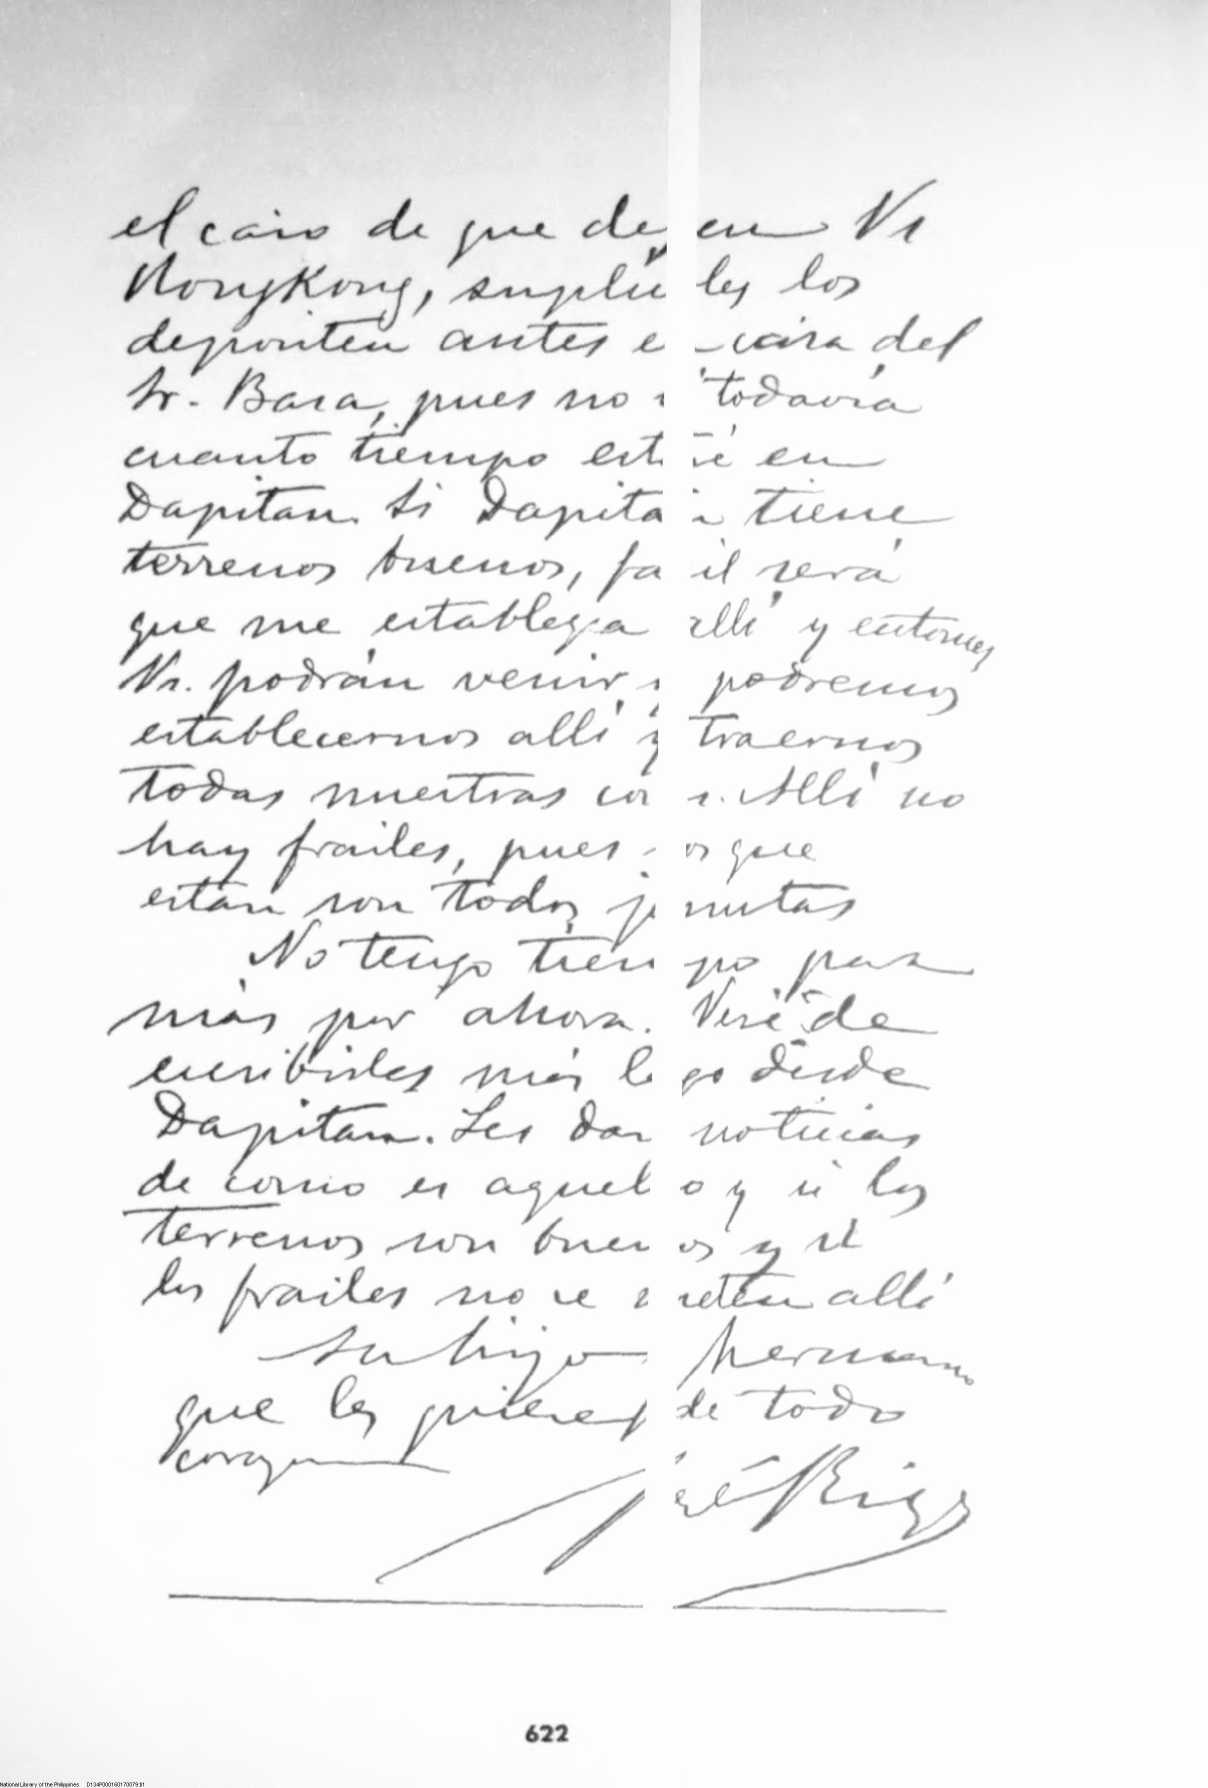 el caso de que dejen Vs
Hongkong, suplícoles los
depositen antes en casa del
Sr. Basa, pues no sé todavía
cuanto tiempo estaré en
Dapitan. Si Dapitan tiene
terrenos buenos, facil será
que me establezca allí y entonces
Vs. podrán venir, y podremos
establecernos allí y traernos
todas nuestras cosas. Allí no
hay frailes, pues los que
están son todos jesuitas
No tengo tiempo para
más por ahora. Veré de
escribirles más largo desde
Dapitan. Les daré noticias
de como es aquello y si los
terrenos son buenos y si
los frailes no se meten allí
Su hijo hermano
que les quiere de todo
corazon
José Rizal
622
National Library of the Philippines D134P000160170079.tif